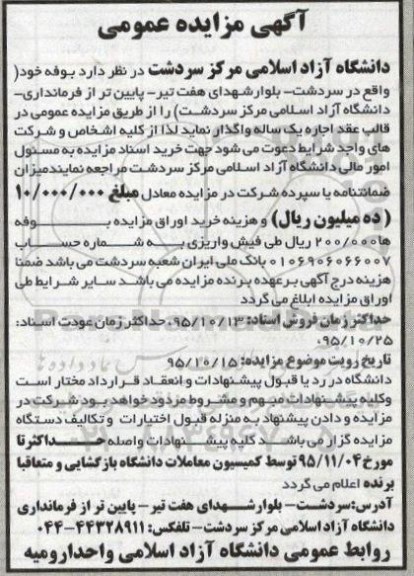 آگهی مزایده عمومی
دانشگاه آزاد اسلامی مرکز سردشت در نظر دارد بوفه خود(
واقع در سردشت- بلوار شهدای هفت تیر- پایین تر از فرمانداری-
دانشگاه آزاد اسلامی مرکز سردشت) را از طریق مزایده عمومی در
قالب عقد اجاره یک ساله واگذار نماید لذا از کلیه اشخاص و شرکت
های واجد شرایط دعوت می شود جهت خرید اسناد مزایده به مسئول
امور مالی دانشگاه آزاد اسلامی مرکز سردشت مراجعه نمایند میزان
ضمانتنامه یا سپرده شرکت در مزایده معادل مبلغ ۱۰/۰۰۰/۰۰۰
( ده میلیون ریال) و هزینه خرید اوراق مزایده بوفه
ها ۲۰۰/۰۰۰ ریال طی فیش واریزی به شماره حساب
۰۱۰۶۹۰۶۰۶۶۰۰۷ بانک ملی ایران شعبه سردشت می باشد ضمنا
هزینه درج آگهی بر عهده برنده مزایده می باشد سایر شرایط طی
اوراق مزایده ابلاغ می گردد
حداکثر زمان فروش اسناد: ۹۵/۱۰/۱۳، حداکثر زمان عودت اسناد:
۹۵/۱۰/۲۵،
تاریخ رویت موضوع مزایده: ۹۵/۱۰/۱۵
دانشگاه در رد یا قبول پیشنهادات و انعقاد قرارداد مختار است
وکلیه پیشنهادات مبهم و مشروط مردود خواهد بود شرکت در
مزایده و دادن پیشنهاد به منزله قبول اختیارات و تکالیف دستگاه
مزایده گزار می باشد کلیه پیشنهادات واصله حداکثر تا
مورخ ۹۵/۱۱/۰۴ توسط کمیسیون معاملات دانشگاه بازگشایی و متعاقبا
برنده اعلام می گردد
آدرس: سردشت- بلوار شهدای هفت تیر- پایین تر از فرمانداری
دانشگاه آزاد اسلامی مرکز سردشت- تلفکس: ۴۴۳۲۸۹۱۱-۰۴۴
روابط عمومی دانشگاه آزاد اسلامی واحد ارومیه